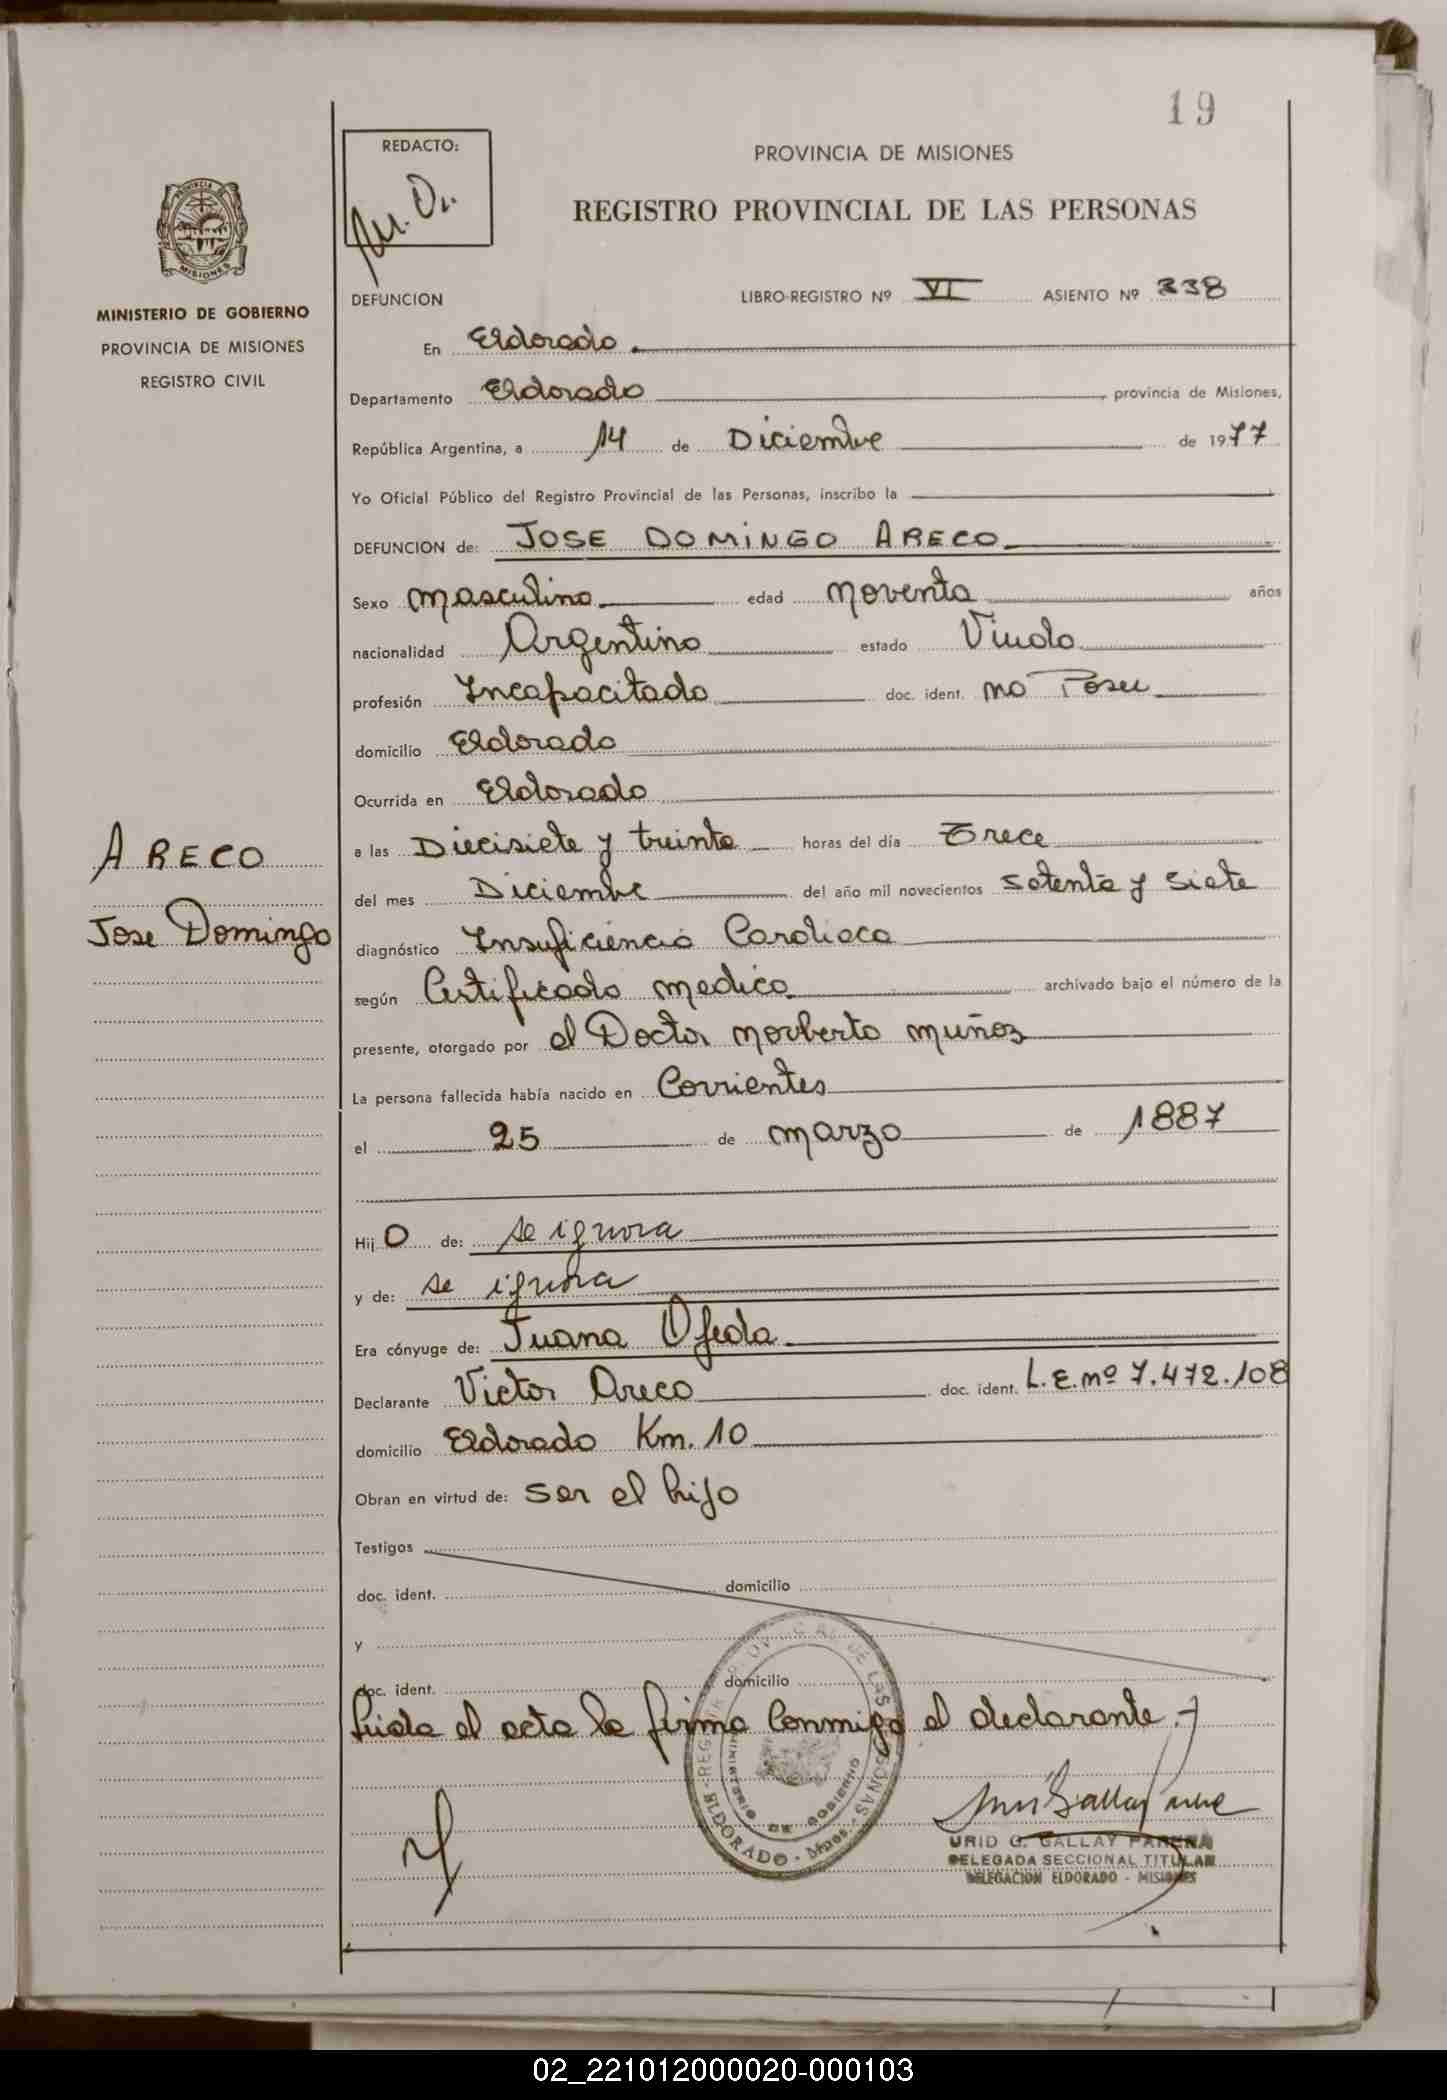 19
REDACTO:
PROVINCIA DE MISIONES
REGISTRO PROVINCIAL DE LAS PERSONAS
MINISTERIO DE GOBIERNO
PROVINCIA DE MISIONES
REGISTRO CIVIL
DEFUNCION LIBRO-REGISTRO Nº VI ASIENTO Nº 338
En Eldorado
Departamento Eldorado, provincia de Misiones,
República Argentina, a 14 de Diciembre de 1977
Yo Oficial Público del Registro Provincial de las Personas, inscribo la
DEFUNCION de: JOSE DOMINGO ARECO
Sexo masculino edad noventa años
nacionalidad Argentino estado Viudo
profesión Incapacitado doc. ident. no Posee
domicilio Eldorado
Ocurrida en Eldorado
ARECO
Jose Domingo
a las Diecisiete y treinta horas del día Trece
del mes Diciembre del año mil novecientos setenta y siete
diagnóstico Insuficiencia Cardiaca
según Certificado medico archivado bajo el número de la
presente, otorgado por el Doctor Norberto Muñoz
La persona fallecida había nacido en Corrientes
el 25 de marzo de 1887
Hijo de: se ignora
y de: se ignora
Era cónyuge de: Juana Ojeda
Declarante Victor Areco doc. ident. L.E.nº 7.472.108
domicilio Eldorado Km. 10
Obran en virtud de: ser el hijo
Testigos
doc. ident. domicilio
y
doc. ident. domicilio
Leida el acta la firma conmigo el declarante.-
REGISTRO PROVINCIAL DE LAS PERSONAS
MINISTERIO DE GOBIERNO
ELDORADO - Mnes.
URID G. GALLAY PARENA
DELEGADA SECCIONAL TITULAR
DELEGACION ELDORADO - MISIONES
02_221012000020-000103